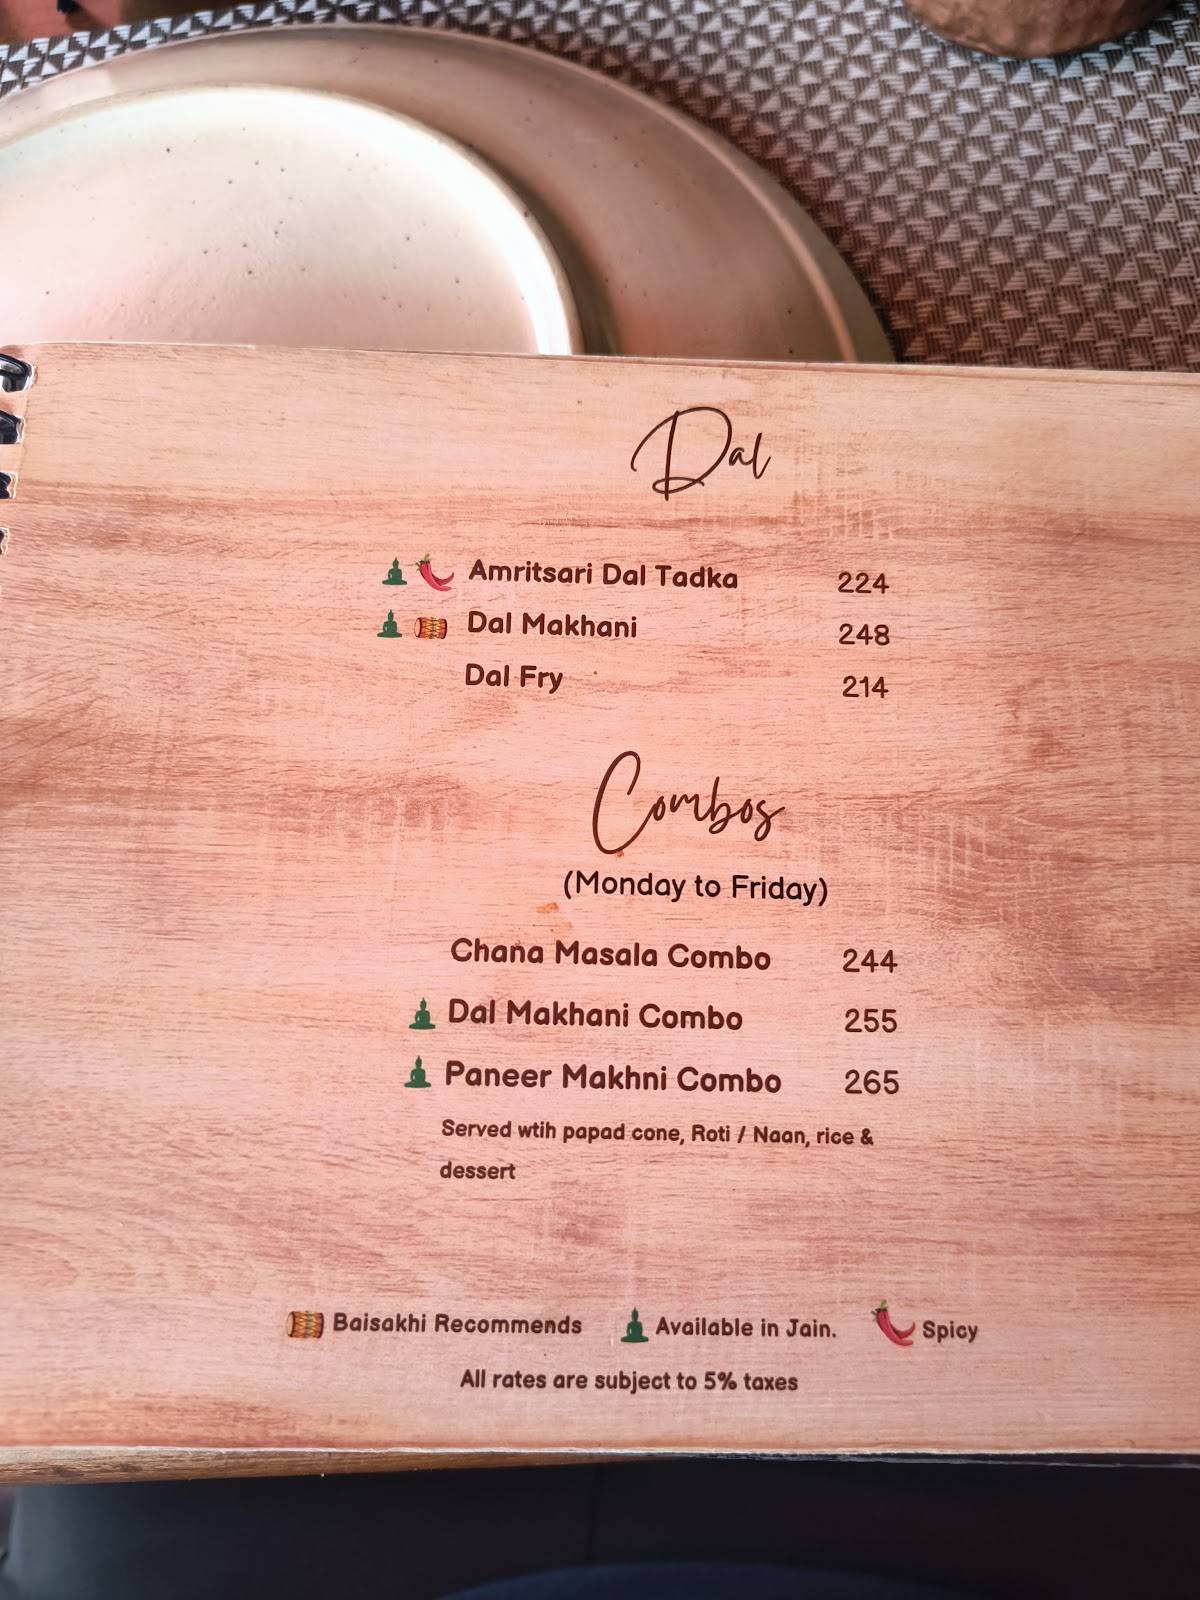 Dal
Amritsari Dal Tadka 224
Dal Makhani 248
Dal Fry 214
Combos
(Monday to Friday)
Chana Masala Combo 244
Dal Makhani Combo 255
Paneer Makhni Combo 265
Served wtih papad cone, Roti / Naan, rice &
dessert
Baisakhi Recommends Available in Jain. Spicy
All rates are subject to 5% taxes